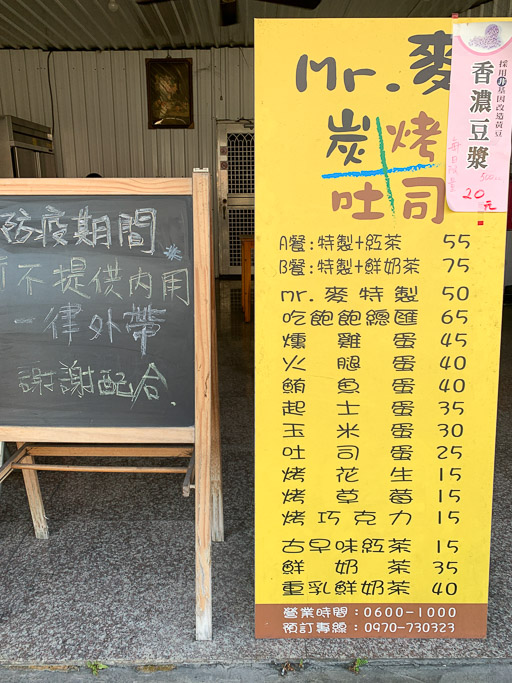 防疫期間
不提供內用
一律外帶
謝謝配合.
Mr.麥
炭烤
吐司
採用非基因改造黃豆
香濃豆漿
每日限量
300cc
20元
A餐:特製+紅茶 55
B餐:特製+鮮奶茶 75
mr.麥特製 50
吃飽飽總匯 65
燻雞蛋 45
火腿蛋 40
鮪魚蛋 40
起士蛋 35
玉米蛋 30
吐司蛋 25
烤花生 15
烤草莓 15
烤巧克力 15
古早味紅茶 15
鮮奶茶 35
重乳鮮奶茶 40
營業時間:0600-1000
預訂專線:0970-730323